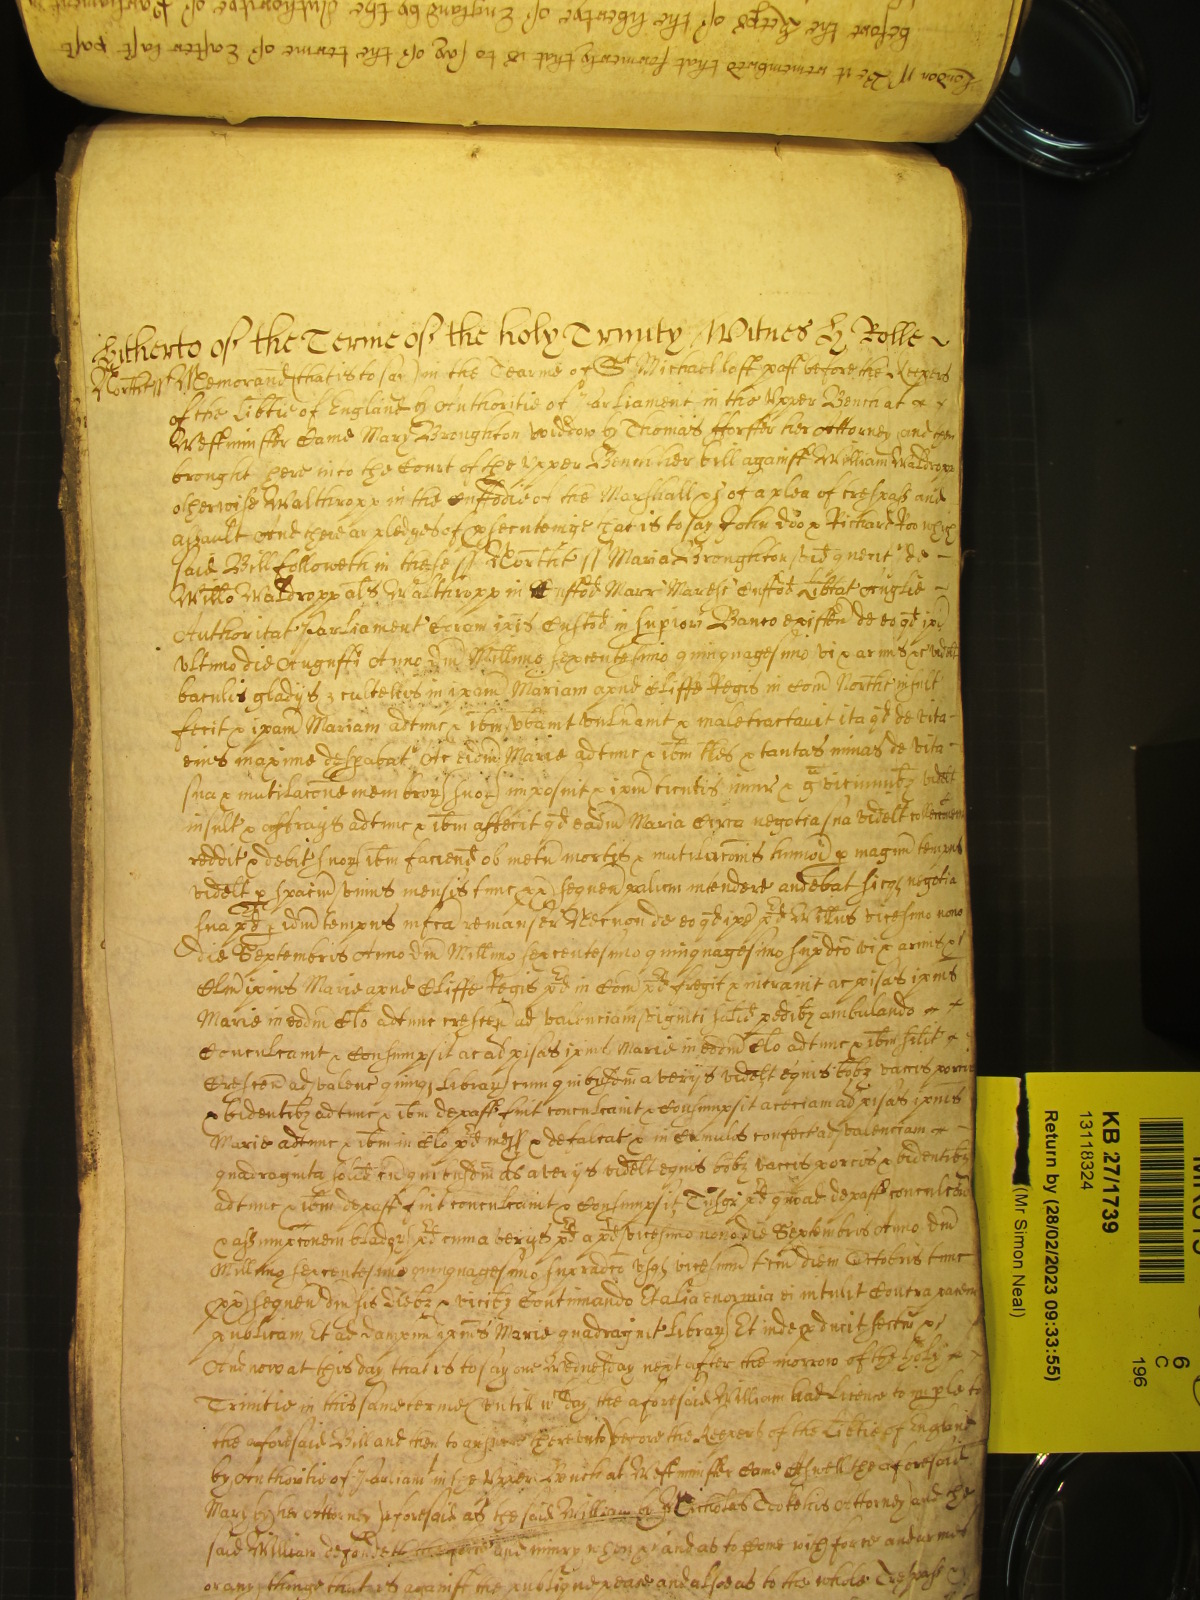 London ss Be it remembred that formerly that is to say of the terme of Easter last past
before the Keeps of the libertye of England by the Authoritye of Parliament
Hitherto of the Terme of the holy Trinity Witnes H Rolle
Northt ss Memorand that is to say on the Tearme of St Michael last past before the Keepers
of the Libtie of England by Authoritie of Parliament in the Upper Bench at
Westminster Came Mary Broughton widdow by Thomas fforster her Attorney and then
brought here into the Court of the Upper Bench her bill against William Waldropp
otherwise Walthropp in the Custodie of the Marshall &c of a plea of trespass and
assault And there are pledges of psecuteinge that is to say John Doo & Richard Roo which
said Bill followeth in these ss Northt ss Maria Broughton vid querit de
Willo Waldropp als Walthropp in Custod Marr Maresc Custod Libtat Anglie
Authoritat Parliament coram ipis Custod in supiori Banco existen de eo qd ipe
ultimo die Augusti Anno Dni Millimo sexcentesimo quinquagesimo vi & armis &c videlt
baculis gladijs & cultellis in ipam Mariam apud Cliffe Regis in Com Northt insult
fecit & ipam Mariam adtunc & ibm vbavit vulnavit & maletractavit ita qd de vita
eius maxime despabat Ac eidm Marie adtunc & ibm tles & tantas minas de vita
sua & mutilacone membror suor imposuit & ipm
insult & affrays adtunc & ibm affecit qd eadm Maria circa negotia sua videlt
reddit & debit suor ibm faciend ob metu mortis & mutilacois huiusmoi p magnu tempus
videlt p spaciu unius mensis tunc px sequen palim intendere audebat sicqz negotia
sua pd p idm tempus infca remanser Necnon de eo qd ipe pd Willus vicesimo nono
die Septembris Anno Dni Millimo sexcentesimo quinquagesimo supdco vi & armis &c
Clm ipius Marie apud Cliffe Regis pd in Com pd fregit & intravit ac pisas ipius
Marie in eodm Clo adtunc crescen ad valenciam viginti solid pedibz ambulando
Conculcavit & Consumpsit ac ad pisas ipius Marie in eodm Clo adtunc & ibm silit
Crescen ad valenc quinqz Librar cum quibusdm averijs videlt equis bobz vaccis porcis
& bidentibz adtunc & ibm depast fuit conculcavit & Consumpsit ac eciam ad pisas ipius
Marie adtunc & ibm in Clo pd mess & defalcat & in Cumulos confect ad valenciam
quadraginta solid cu quibusdm al averijs videlt equis bobz vaccis porcis & bidentibz
adtunc & ibm depast fuit conculcavit & Consumpsit Tnsgr pd quoad depast conculcac
& assumpconem bladoz pd cum averijs pd a pd vicesimo nono die Septembris Anno Dni
Millimo sexcentesimo quinquagesimo supradco usqz vicesimu diem Octobris tunc
px sequen divsis diebz & vicibz Continuando Et alia enormia ei intulit Contra pacem
publicam Et ad dampnu ipius Marie quadragint Librar Et inde pducit sectm &c
And now at this day that is to say one Wednesday next after the morrow of the holy
Trinitie in this same terme untill wch day the aforesaid William had Licence to imple to
the aforesaid Bill and then to answere thereunto before the Keepers of the Libtie of England
by Authoritie of Parliamt in the Upper Bench at Westminster Came Aswell the aforesaid
Mary by her Attorney aforesaid as the said William by Nicholas Toote his Attorney and the
said William defendeth the force and iniury when &c and as to come with force and armes
or any thinge that is against the publique peace and also as to the whole Trespasse
KB 27/1739
13118324
Return by (28/02/2023 09:33:55)
(Mr Simon Neal)
6
C
196